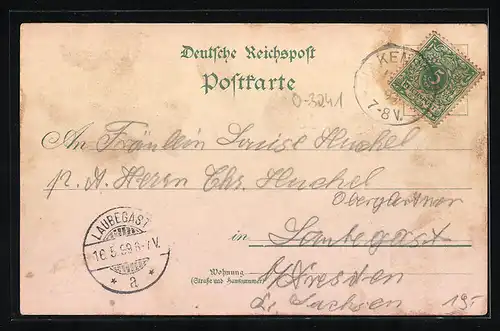 Deutsche Reichspost
Postkarte
KEM
5
7-8 V.
0-3241
An Fräulein Louise Huchel
p. A. Herrn Chr. Huchel
Obergärtner
in Laubegast
Wohnung
(Straße und Hausnummer)
b/Dresden
i. Sachsen
LAUBEGAST
16.5.99.6-7V.
* a *
195